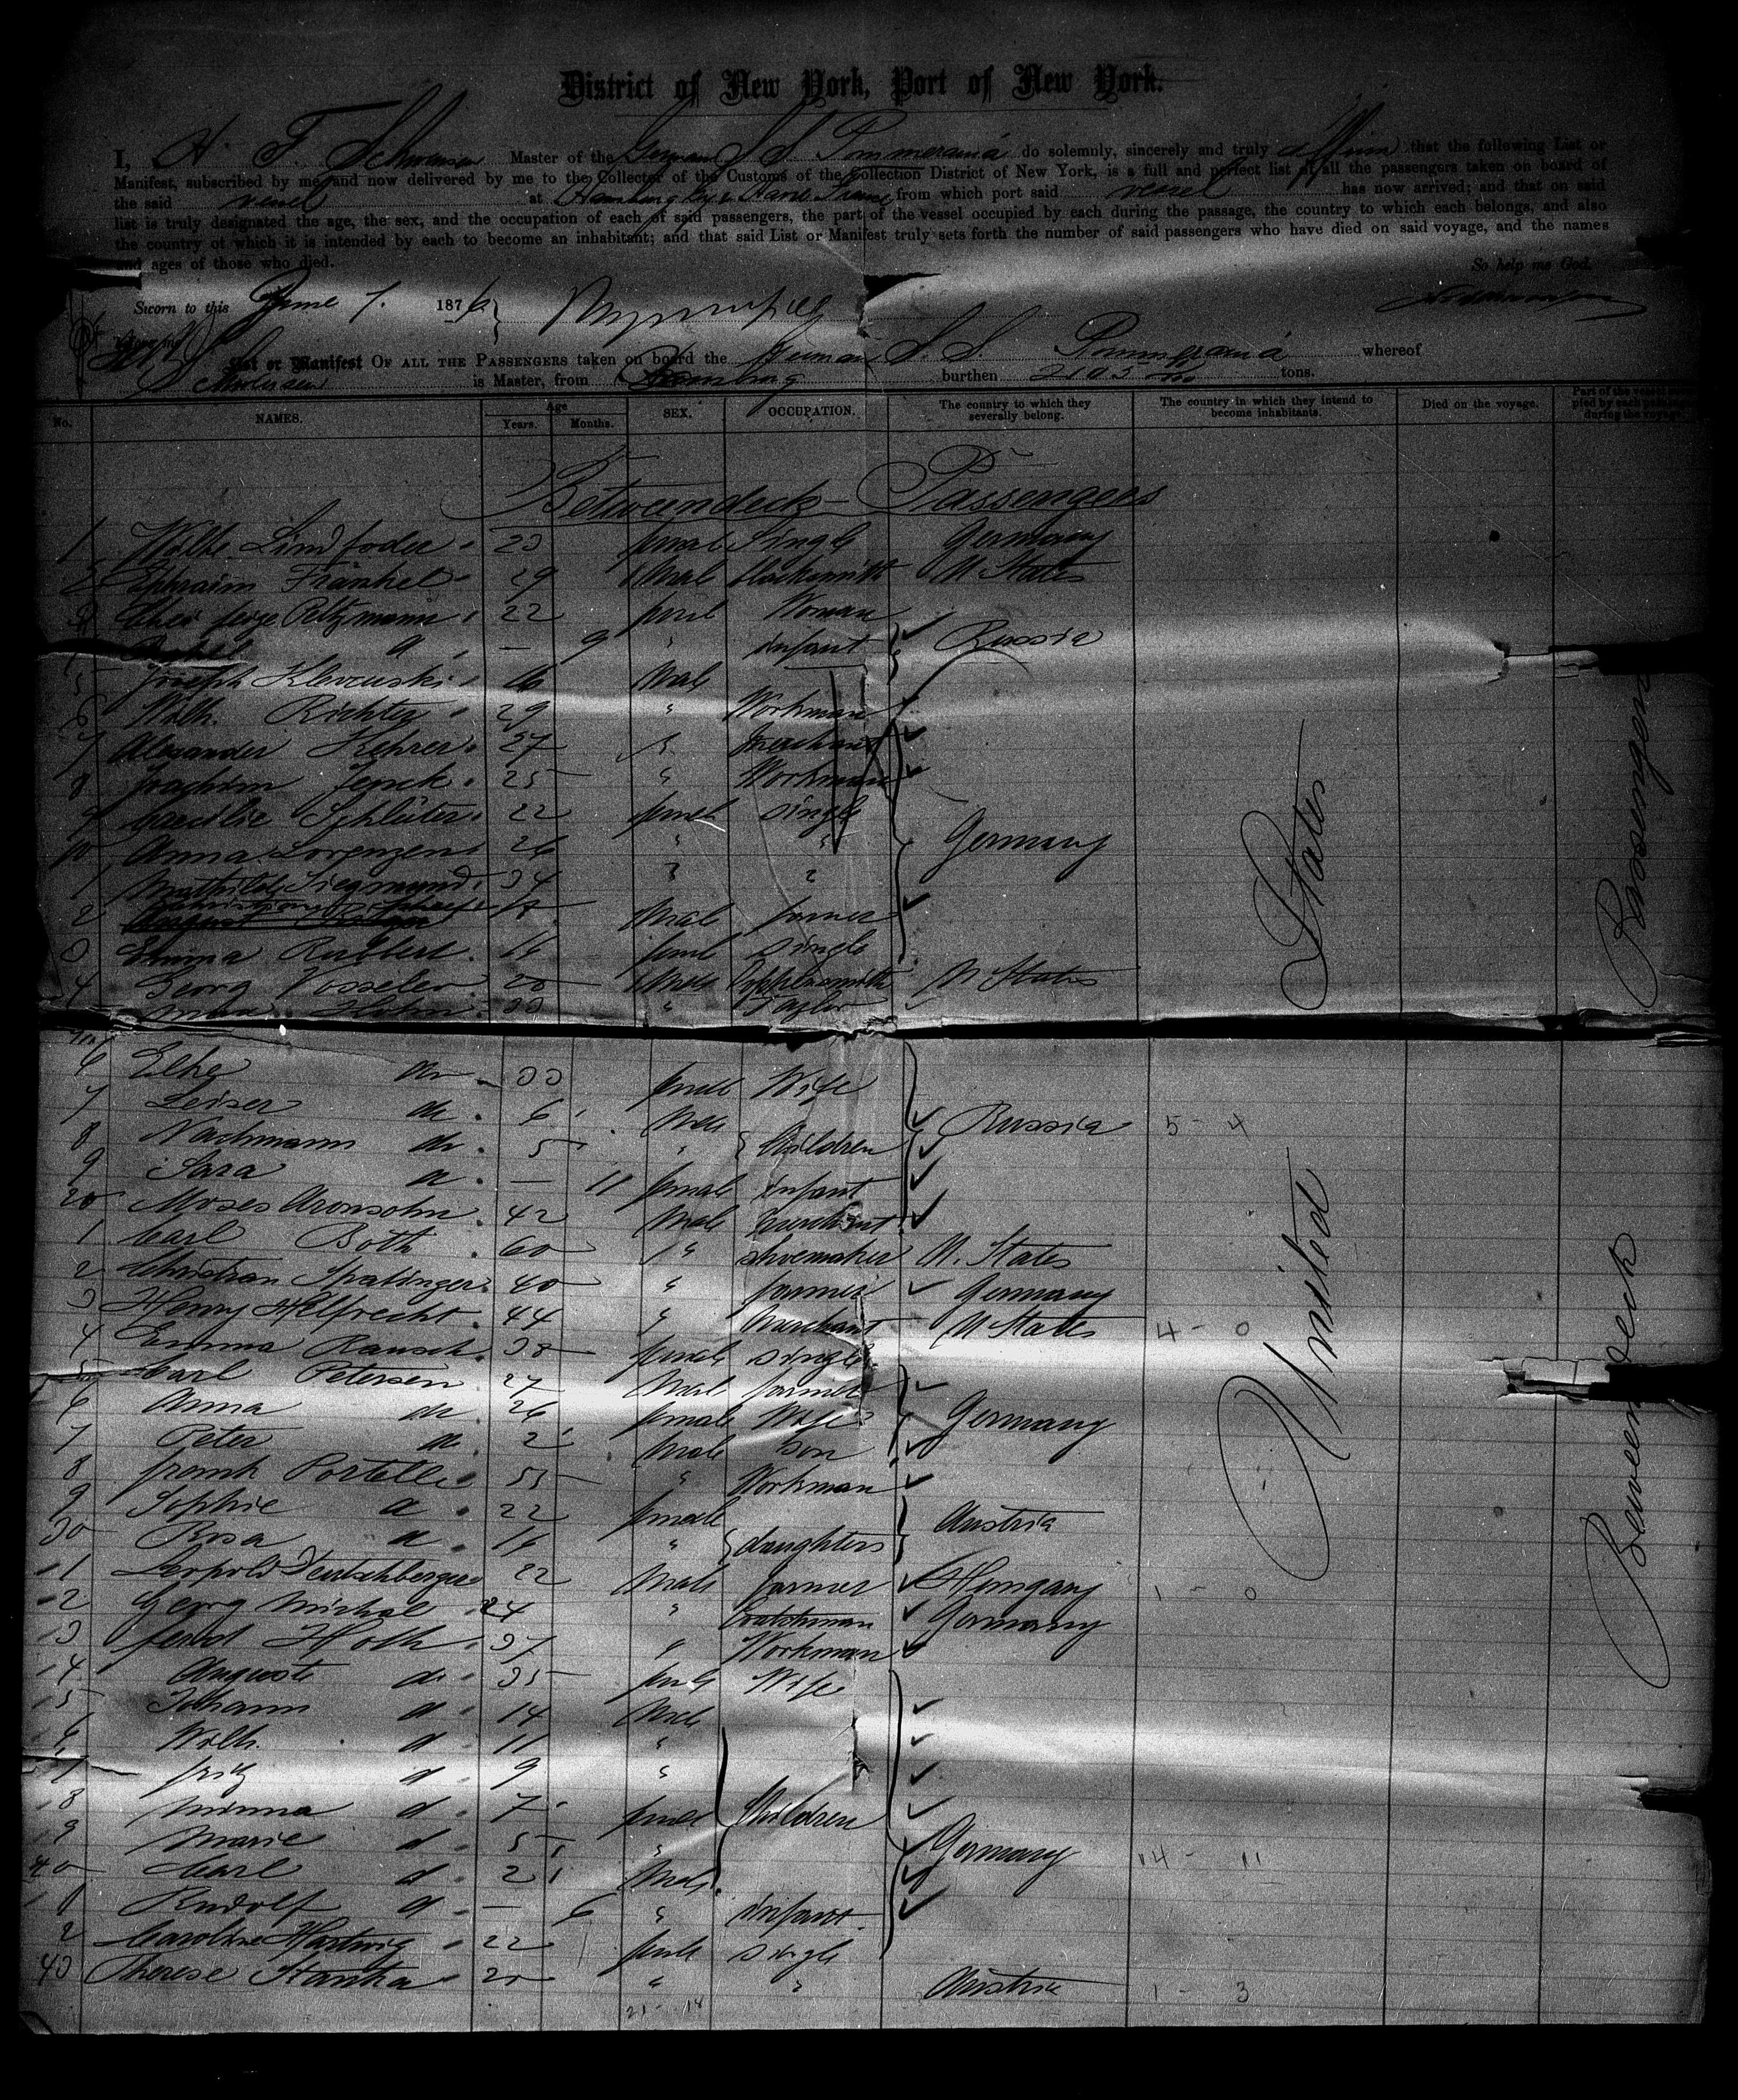 District of New York, Port of New York.
I, H. F. Schwensen Master of the German S. S. Pommerania do solemnly, sincerely and truly affirm that the following List or
Manifest, subscribed by me and now delivered by me to the Collector of the Customs of the Collection District of New York, is a full and perfect list of all the passengers taken on board of
the said vessel at Hamburg & Havre France from which port said vessel has now arrived; and that on said
list is truly designated the age, the sex, and the occupation of each of said passengers, the part of the vessel occupied by each during the passage, the country to which each belongs, and also
the country of which it is intended by each to become an inhabitant; and that said List or Manifest truly sets forth the number of said passengers who have died on said voyage, and the names
and ages of those who died. So help me God.
Sworn to this June 7. 1876
before me
List or Manifest OF ALL THE PASSENGERS taken on board the German S. S. Pommerania whereof
Schwensen is Master, from Hamburg burthen 2105 tons.
No. NAMES. Age Years. Months. SEX. OCCUPATION. The country to which they severally belong. The country in which they intend to become inhabitants. Died on the voyage. Part of the vessel occupied by each passenger during the voyage.
Betweendeck-Passengers
1 Lindfoder 23 female Single Germany
2 Ephraim Fränkel 29 Male blacksmith U States
3 Peltzmann 22 female Woman
4 d — 9 " infant Russia
5 Joseph 16 Male
6 Wilh. Richter 29 " Workman
7 Alexander Kehrer 27 " merchant
8 Joachim Jenck 25 " Workman
9 Caecilie Schlüter 22 female single
10 Anna Lorenzen 26 " " Germany
1 Mathilde Siegmund 34 " "
2 Male farmer
3 Emma Rubbert 16 female single
4 Georg Vosseler 20 Male Copplersmith U States
33 " Taylor
6 Elke do 33 female Wife
7 Leiser do 6 Male Russia 5 - 4
8 Nachmann do 5 " Children
9 Sara d — 11 female infant
20 Moses Aronsohn 42 Male merchant
1 Carl Both 60 " shoemaker U. States
2 Christian Spalinger 40 " farmer Germany
3 Henry Helfrecht 44 " Merchant U States 4 - 0
4 Emma Rausch 38 female single
5 Carl Petersen 27 Male farmer
6 Anna do 26 female Wife Germany
7 Peter do 2 Male Son
8 frank Portelle 55 " Workman
9 Sophie d 22 female Austria
30 Rosa d 16 " daughters
1 Leopold Deutschberger 22 Male farmer Hungary 1 - 0
2 Georg Michael 24 " Germany
3 ferd Hoth 37 " Workman
4 Auguste do 35 female Wife
5 Johann d 14 Male
6 Wilh. d 11 "
7 fritz d 9 "
8 Minna d 7 female Children
9 Marie d 5 " Germany 14 - 11
40 Carl d 2 Male
1 Rudolf d — 6 " infant
2 Caroline Hartwig 22 female single
43 Therese Stanka 20 " " Austria 1 - 3
21 - 14
United States
Betweendeck Passengers